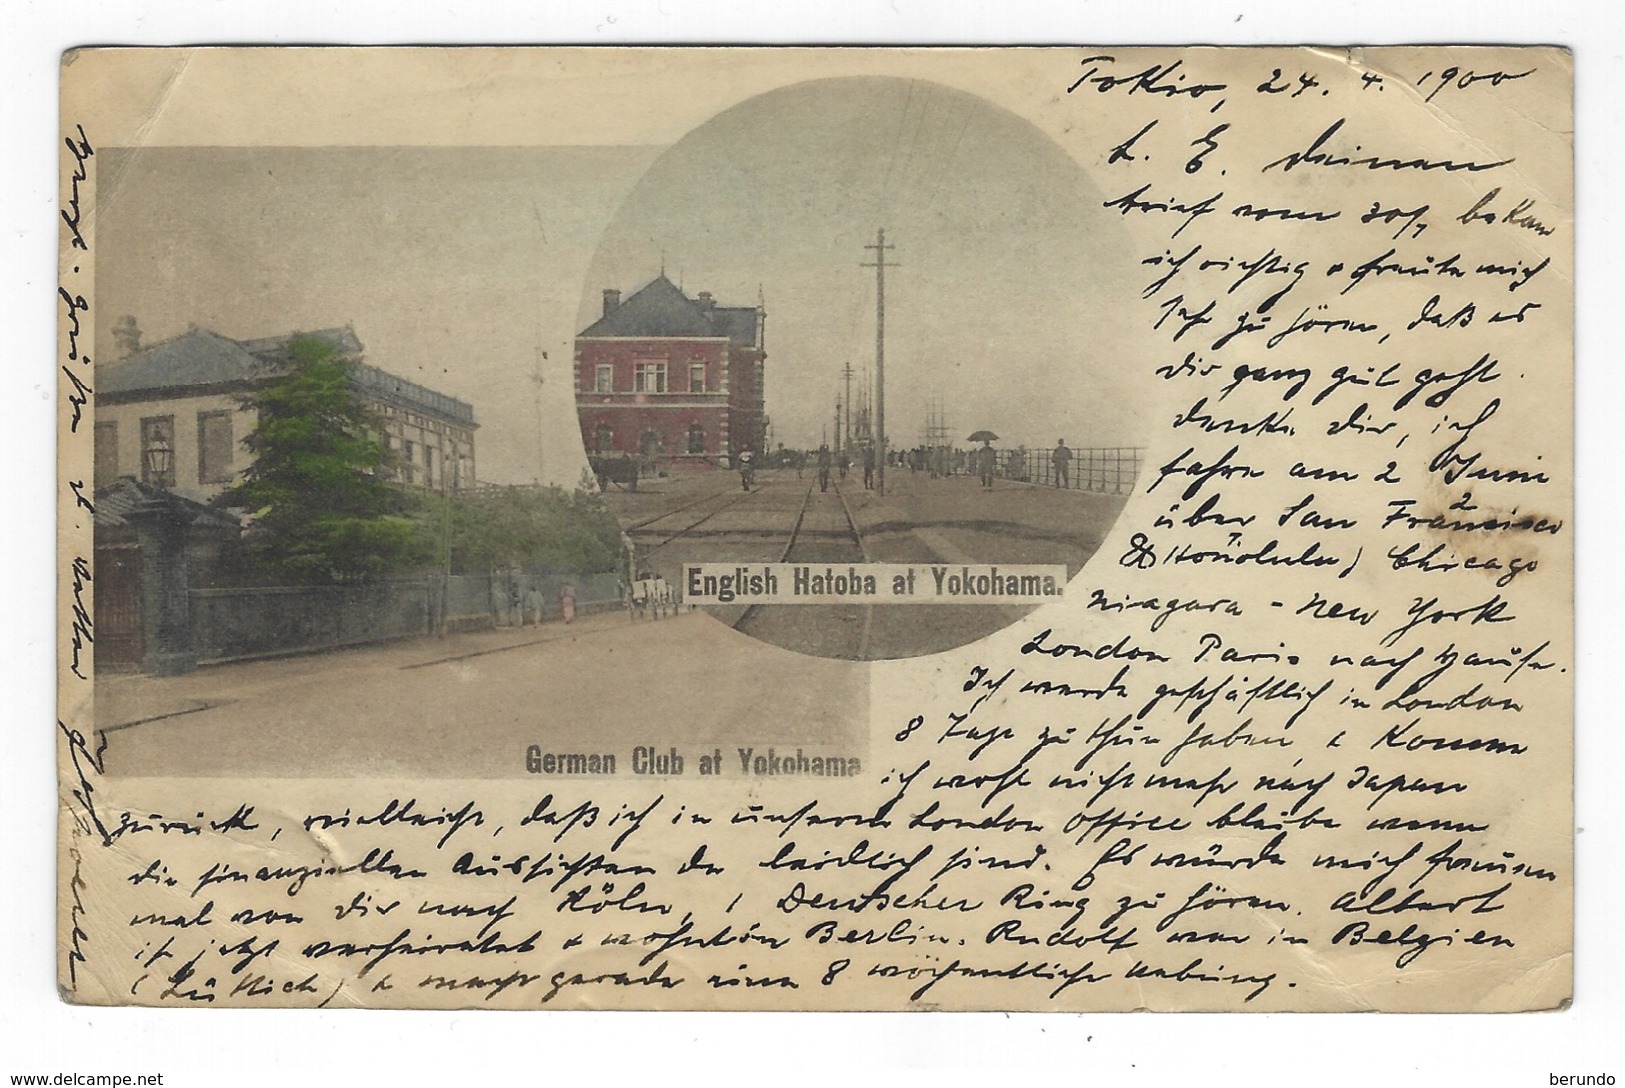 Tokio, 24. 4. 1900
L. E. Deinen
brief vom 30/7 bekam
ich richtig & freute mich
sehr zu hören, daß es
dir ganz gut geht.
denke dir, ich
fahre am 2 Juni
über San Francisco
& Honolulu, Chicago
Niagara - New York
London Paris nach Hause.
Ich werde geschäftlich in London
8 Tage zu thun haben, & komme
ich wohl nicht mehr nach Japan
zurück, vielleicht, daß ich in unserer London Office bleibe wenn
die finanziellen Aussichten da leidlich sind. Es würde mich freuen
mal von dir nach Köln, 1 Deutscher Ring zu hören. Albert
ist jetzt verheiratet & wohnt in Berlin. Rudolf war in Belgien
(Lüttich) & macht gerade eine 8 wöchentliche Uebung.
Herzl. grüßen d. Vetter
English Hatoba at Yokohama.
German Club at Yokohama
www.delcampe.net
berundo